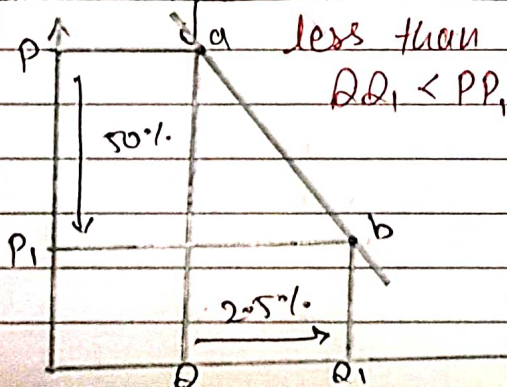 less than
QQ₁ < PP₁
P
a
50%.
P₁
b
2.5%.
Q
Q₁